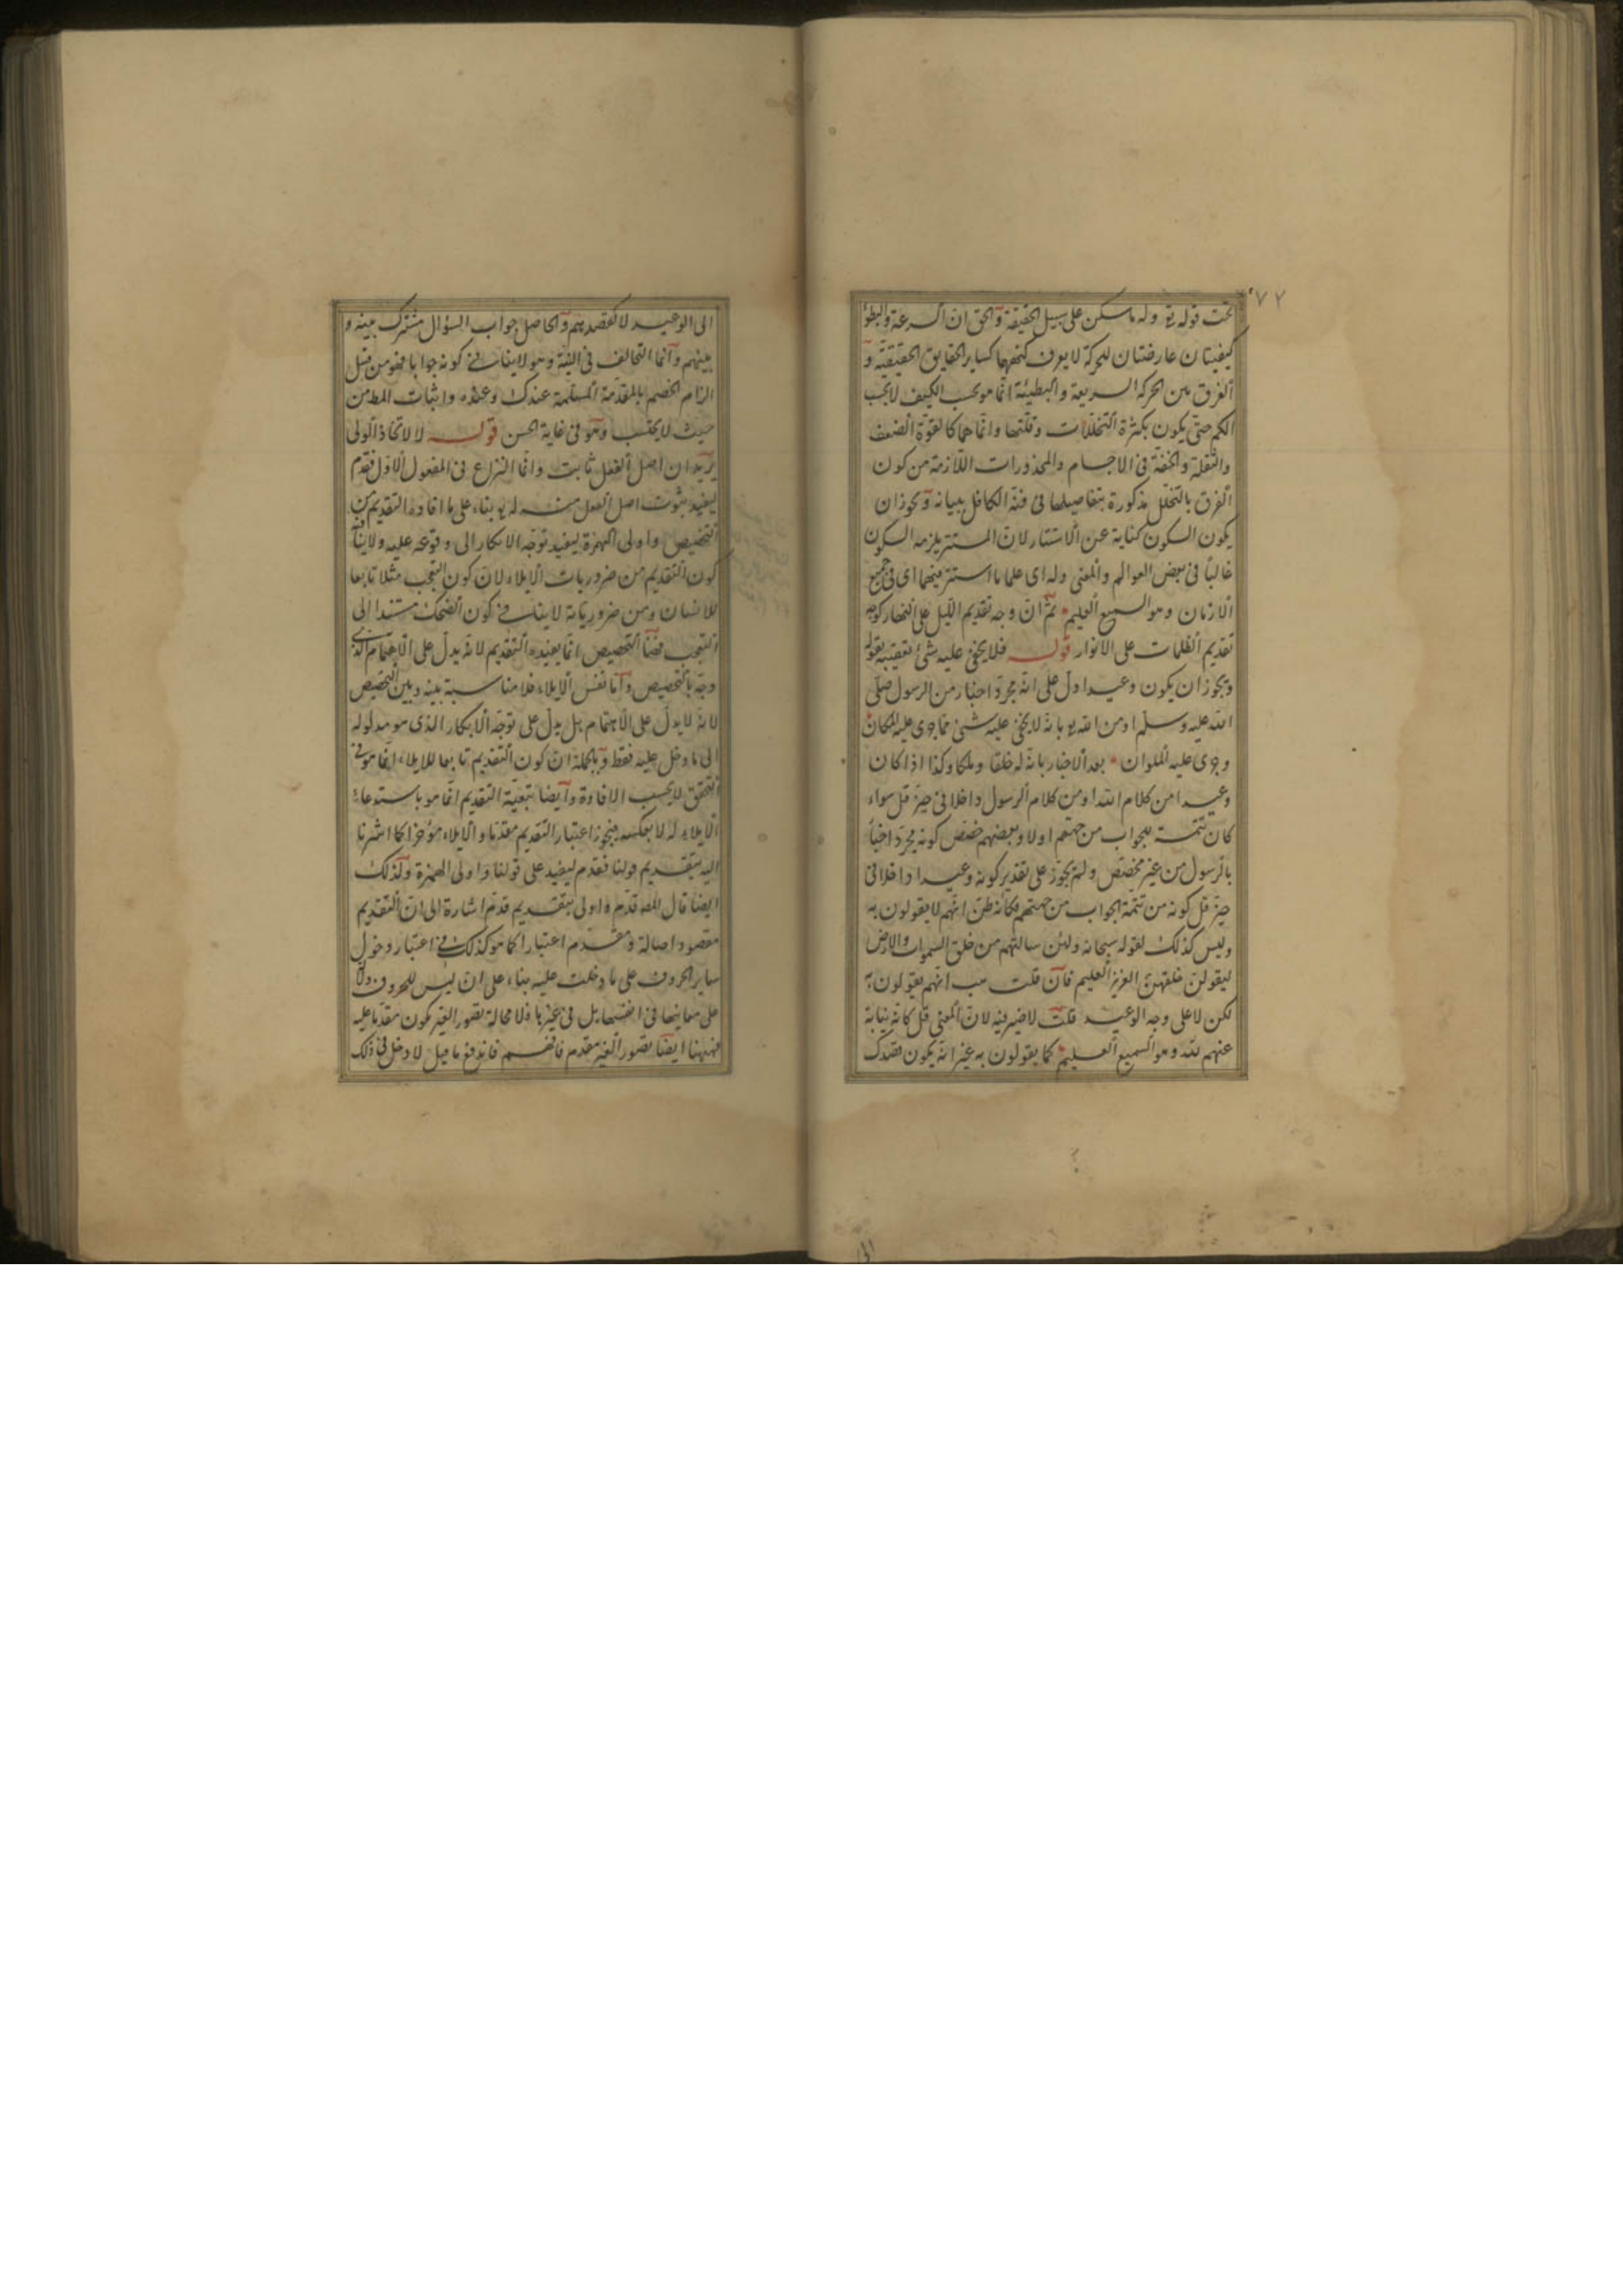 ٧٢
تحت قوله تع وله ما سكن على سبيل الحقيقة والحق ان السرعة والبطؤ
كيفيتان عارضتان للحركة لا يعرف كنههما كساير الحقايق الحقيقية و
الفرق بين الحركة السريعة والبطيئة انما هو بحسب الكيف لا بحسب
الكم حتى يكون بكثرة التخللات وقلتها وانما هما كالقوة الضعف
والثقلة والخفة في الاجسام والمحذورات اللازمة من كون
الفرق بالتخلل مذكورة بتفاصيلها في فنه الكافل ببيانه ويجوز ان
يكون السكون كناية عن الاستتار لان المستتر يلزمه السكون
غالبا في بعض العوالم والمعنى وله اى علما ما استتر فيهما اى في جميع
الازمان وهو السميع العليم ثم ان وجه تقديم الليل على النهار كوجه
تقديم الظلمات على الانوار قوله فلا يخفى عليه شئ تعقيبه بقوله
ويجوز ان يكون وعيدا دل على انه مجرد اخبار من الرسول صلى
الله عليه وسلم او من الله تع بانه لا يخفى عليه شئ مما جوى عليه المكان
وجرى عليه الملوان بعد الاخبار بانه له خلقا وملكا وكذا اذا كان
وعيدا من كلام الله او من كلام الرسول داخلا في حيز قل سواء
كان تتمة للجواب من جهتهم اولا وبعضهم خصص كونه مجرد اخبا
بالرسول من غير مخصص ولم يجوز على تقدير كونه وعيدا داخلا في
حيز قل كونه من تتمة الجواب من جهتهم فكانه ظن انهم لا يقولون به
وليس كذلك لقوله سبحانه ولئن سالتهم من خلق السموات والارض
ليقولن خلقهن العزيز العليم فان قلت هب انهم يقولون به
لكن لا على وجه الوعيد قلت لا ضير فيه لان المعنى قل كانه نيابة
عنهم لله وهو السميع العليم كما يقولون به غير انه يكون بقصدك
الى الوعيد لا بقصدهم والحاصل جواب السؤال مشترك بينه و
بينهم وانما التخالف في النية وهو لا ينافى كونه جوابا فهو من قبل
الزام الخصم بالمقدمة المسلمة عندك وعنده واثبات المط من
حيث لا يحتسب وهو في غاية الحسن قوله لا لاتخاذ الولى
يريد ان اصل الفعل ثابت وانما النزاع في المفعول الاول فقدم
ليفيد ثبوت اصل الفعل منه له تع بناء على ما افاده التقديم من
التخصيص واولى الهمزة ليفيد توجه الانكار الى وقوعه عليه ولا ينافى
كون التقديم من ضروريات الايلاء لان كون التعجب مثلا تابعا
للانسان ومن ضرورياته لا ينافى كون الضحك مستندا الى
التعجب فضا التخصيص انما يفيده التقديم لانه يدل على الاهتمام الذى
وجه بالتخصيص واما نفس الايلاء فلا مناسبة بينه وبين التخصيص
لانه لا يدل على الاهتمام بل يدل على توجه الانكار الذى هو مدلوله
الى ما دخل عليه فقط وبالجملة ان كون التقديم تابعا للايلاء انما هو في
التحقق لا بحسب الافادة وايضا تبعية التقديم انما هو باستدعاء
الايلاء له لا بعكسه فيجوز اعتبار التقديم مقدما والايلاء مؤخرا كما اشرنا
اليه بتقديم قولنا فقدم ليفيد على قولنا واولى الهمزة ولذلك
ايضا قال المصـ قدم واولى بتقديم قدم اشارة الى ان التقديم
مقصود اصالة ومقدم اعتبارا كما هو كذلك في اعتبار دخول
ساير الحروف على ما دخلت عليه بناء على ان ليس للحروف دلا
على معاينها في انفسها بل في غيرها فلا محالة تصور الغير يكون مقدما عليه
فههنا ايضا تصور الغير مقدم فافهم فاندفع ما قيل لا دخل في ذلك